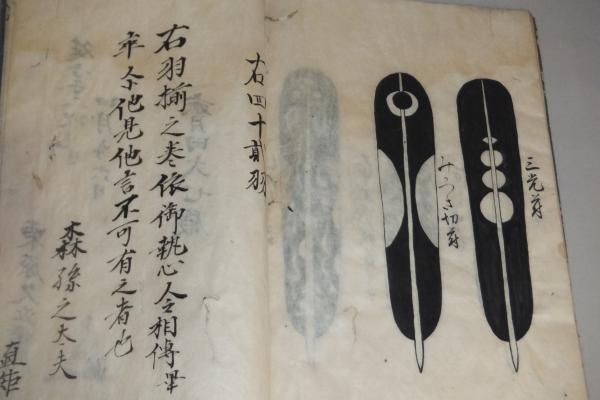 三光符
みつき切符
右四十貳羽
右羽揃之巻依御執心令相傳畢
卒尓他見他言不可有之者也
森孫之太夫
直矩